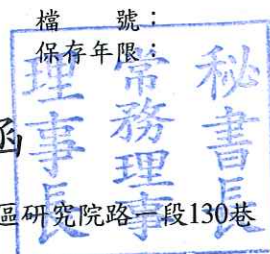 檔　　號：
保存年限：
秘書長
常務理事
理事長
函
區研究院路一段130巷